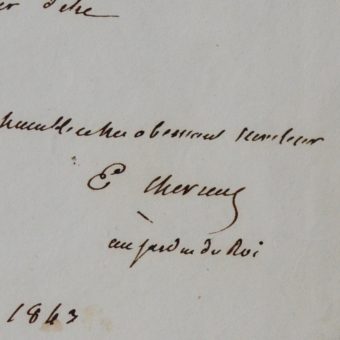 d'être
humble et très obéissant serviteur
E Chevreul
au jardin du Roi
1843